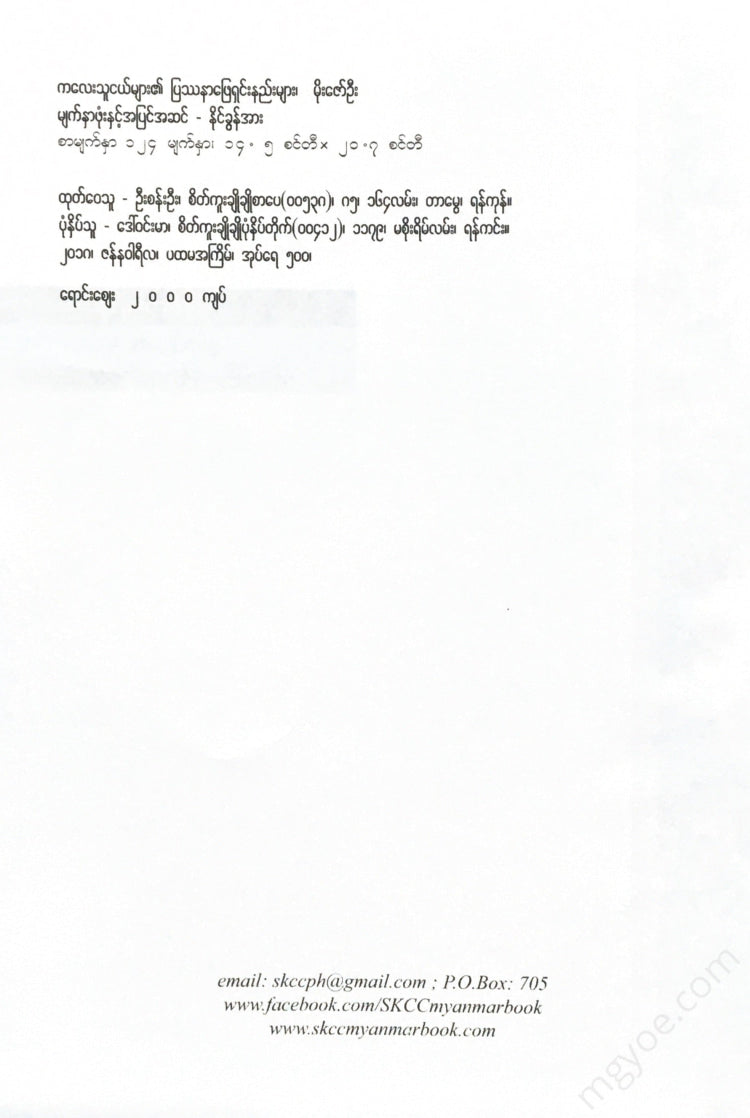 ကလေးသူငယ်များ၏ ပြဿနာဖြေရှင်းနည်းများ၊ မိုးဇော်ဦး
မျက်နှာဖုံးနှင့်အပြင်အဆင် - နိုင်ခွန်အား
စာမျက်နှာ ၁၂၄ မျက်နှာ၊ ၁၄.၅ စင်တီ × ၂၀.၇ စင်တီ
ထုတ်ဝေသူ - ဦးစန်းဦး၊ စိတ်ကူးချိုချိုစာပေ(၀၀၅၃၈)၊ ၈၅၊ ၁၆၄လမ်း၊ တာမွေ၊ ရန်ကုန်။
ပုံနှိပ်သူ - ဒေါ်ဝင်းမာ၊ စိတ်ကူးချိုချိုပုံနှိပ်တိုက်(၀၀၄၁၂)၊ ၁၁၇၉၊ မစိုးရိမ်လမ်း၊ ရန်ကင်း။
၂၀၁၈၊ ဇန်နဝါရီလ၊ ပထမအကြိမ်၊ အုပ်ရေ ၅၀၀၊
ရောင်းဈေး ၂ ၀ ၀ ၀ ကျပ်
email: skccph@gmail.com ; P.O.Box: 705
www.facebook.com/SKCCmyanmarbook
www.skccmyanmarbook.com
mgyoe.com